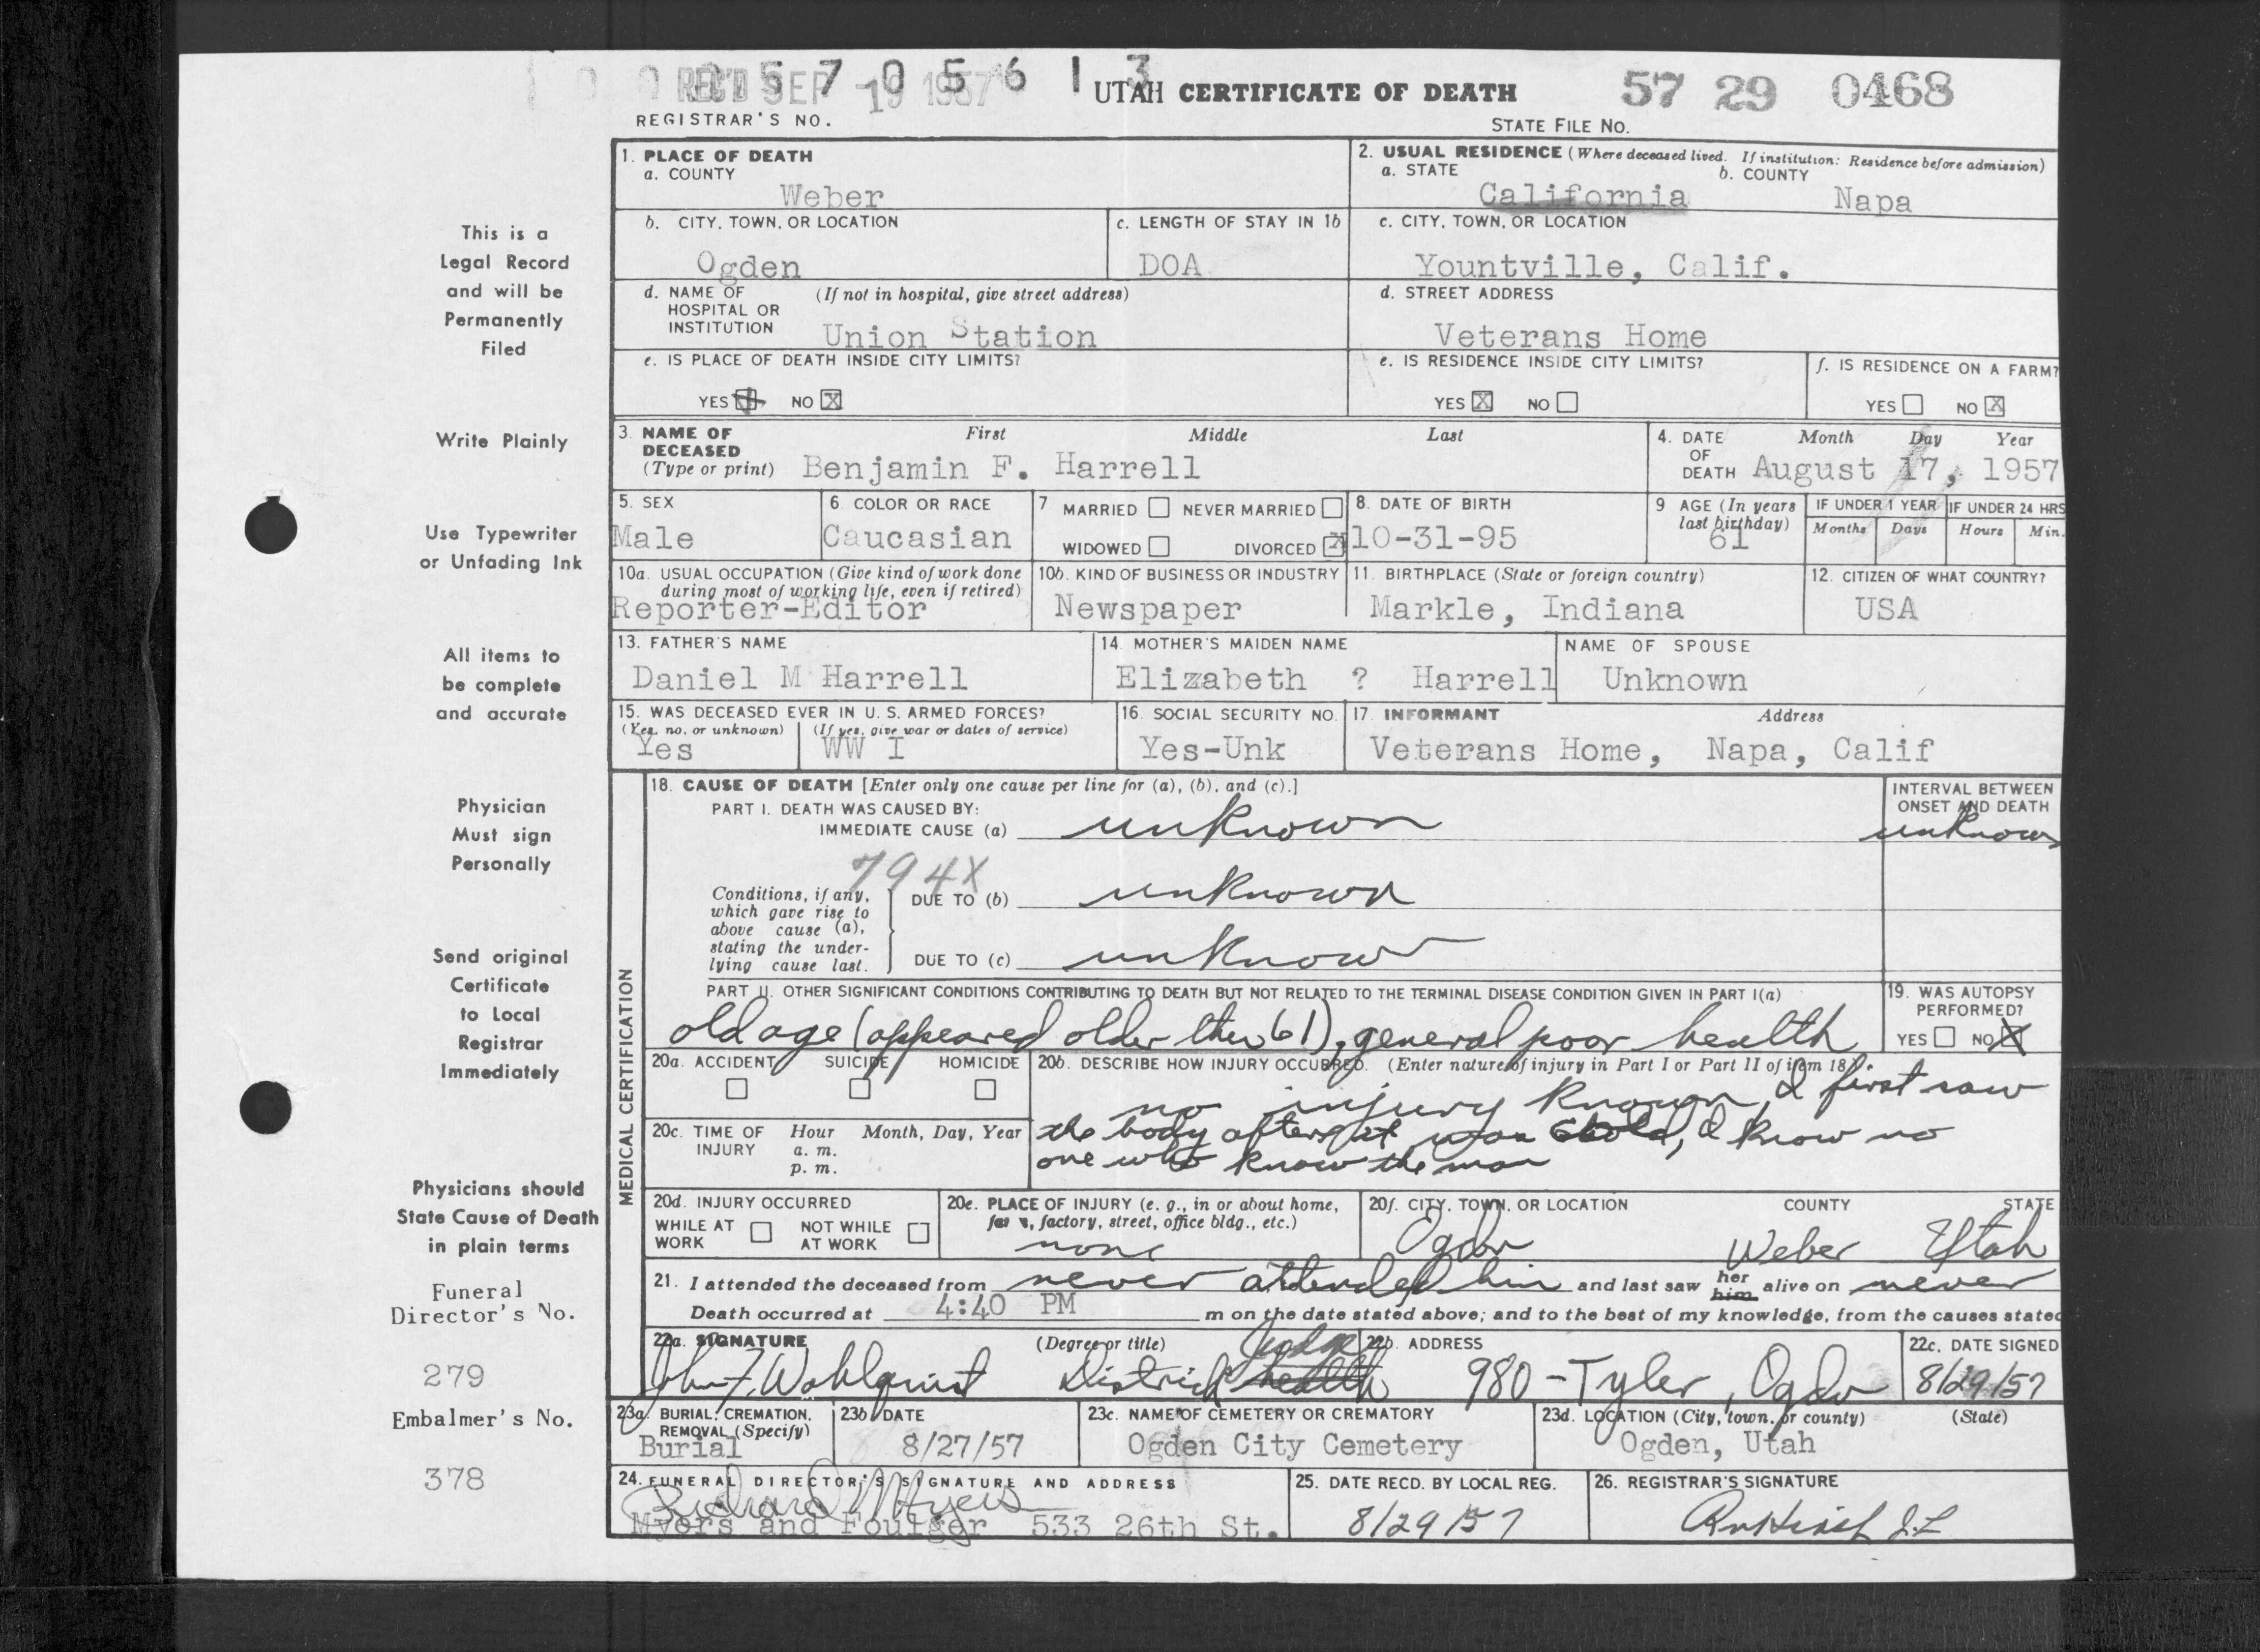 REC'D SEP 19 1957
0 5 7 0 5 6 1 3
UTAH CERTIFICATE OF DEATH
57 29 0468
REGISTRAR'S NO.
STATE FILE No.
This is a
Legal Record
and will be
Permanently
Filed
Write Plainly
Use Typewriter
or Unfading Ink
All items to
be complete
and accurate
Physician
Must sign
Personally
Send original
Certificate
to Local
Registrar
Immediately
Physicians should
State Cause of Death
in plain terms
Funeral
Director's No.
279
Embalmer's No.
378
1. PLACE OF DEATH
a. COUNTY
Weber
2. USUAL RESIDENCE (Where deceased lived. If institution: Residence before admission)
a. STATE b. COUNTY
California Napa
b. CITY, TOWN, OR LOCATION
Ogden
c. LENGTH OF STAY IN 1b
DOA
c. CITY, TOWN, OR LOCATION
Yountville, Calif.
d. NAME OF (If not in hospital, give street address)
HOSPITAL OR
INSTITUTION Union Station
d. STREET ADDRESS
Veterans Home
e. IS PLACE OF DEATH INSIDE CITY LIMITS?
YES NO X
e. IS RESIDENCE INSIDE CITY LIMITS?
YES X NO
f. IS RESIDENCE ON A FARM?
YES NO X
3. NAME OF First Middle Last
DECEASED
(Type or print) Benjamin F. Harrell
4. DATE Month Day Year
OF
DEATH August 17, 1957
5. SEX
Male
6 COLOR OR RACE
Caucasian
7 MARRIED NEVER MARRIED
WIDOWED DIVORCED X
8. DATE OF BIRTH
10-31-95
9 AGE (In years
last birthday)
61
IF UNDER 1 YEAR
Months Days
IF UNDER 24 HRS
Hours Min.
10a. USUAL OCCUPATION (Give kind of work done
during most of working life, even if retired)
Reporter-Editor
10b. KIND OF BUSINESS OR INDUSTRY
Newspaper
11. BIRTHPLACE (State or foreign country)
Markle, Indiana
12. CITIZEN OF WHAT COUNTRY?
USA
13. FATHER'S NAME
Daniel M Harrell
14. MOTHER'S MAIDEN NAME
Elizabeth ? Harrell
NAME OF SPOUSE
Unknown
15. WAS DECEASED EVER IN U. S. ARMED FORCES?
(Yes, no, or unknown) (If yes, give war or dates of service)
Yes WW I
16. SOCIAL SECURITY NO.
Yes-Unk
17. INFORMANT Address
Veterans Home, Napa, Calif
MEDICAL CERTIFICATION
18. CAUSE OF DEATH [Enter only one cause per line for (a), (b), and (c).]
PART I. DEATH WAS CAUSED BY:
IMMEDIATE CAUSE (a) unknown
INTERVAL BETWEEN
ONSET AND DEATH
unknown
794X
Conditions, if any,
which gave rise to
above cause (a),
stating the under-
lying cause last.
DUE TO (b) unknown
DUE TO (c) unknown
PART II. OTHER SIGNIFICANT CONDITIONS CONTRIBUTING TO DEATH BUT NOT RELATED TO THE TERMINAL DISEASE CONDITION GIVEN IN PART I(a)
old age (appeared older then 61), general poor health
19. WAS AUTOPSY
PERFORMED?
YES NO X
20a. ACCIDENT SUICIDE HOMICIDE
20b. DESCRIBE HOW INJURY OCCURRED. (Enter nature of injury in Part I or Part II of item 18)
no injury known, I first saw
the body after it was cold, I know no
one who knows the man
20c. TIME OF Hour Month, Day, Year
INJURY a. m.
p. m.
20d. INJURY OCCURRED
WHILE AT NOT WHILE
WORK AT WORK
20e. PLACE OF INJURY (e. g., in or about home,
factory, street, office bldg., etc.)
none
20f. CITY, TOWN, OR LOCATION COUNTY STATE
Ogden Weber Utah
21. I attended the deceased from never attended him and last saw her him alive on never
Death occurred at 4:40 PM m on the date stated above; and to the best of my knowledge, from the causes stated
22a. SIGNATURE (Degree or title)
John F. Wahlquist District health Judge
22b. ADDRESS
980 - Tyler, Ogden
22c. DATE SIGNED
8/29/57
23a. BURIAL, CREMATION,
REMOVAL (Specify)
Burial
23b DATE
8/27/57
23c. NAME OF CEMETERY OR CREMATORY
Ogden City Cemetery
23d. LOCATION (City, town, or county) (State)
Ogden, Utah
24. FUNERAL DIRECTOR'S SIGNATURE AND ADDRESS
Richard Myers
Myers and Foulger 533 26th St.
25. DATE RECD. BY LOCAL REG.
8/29/57
26. REGISTRAR'S SIGNATURE